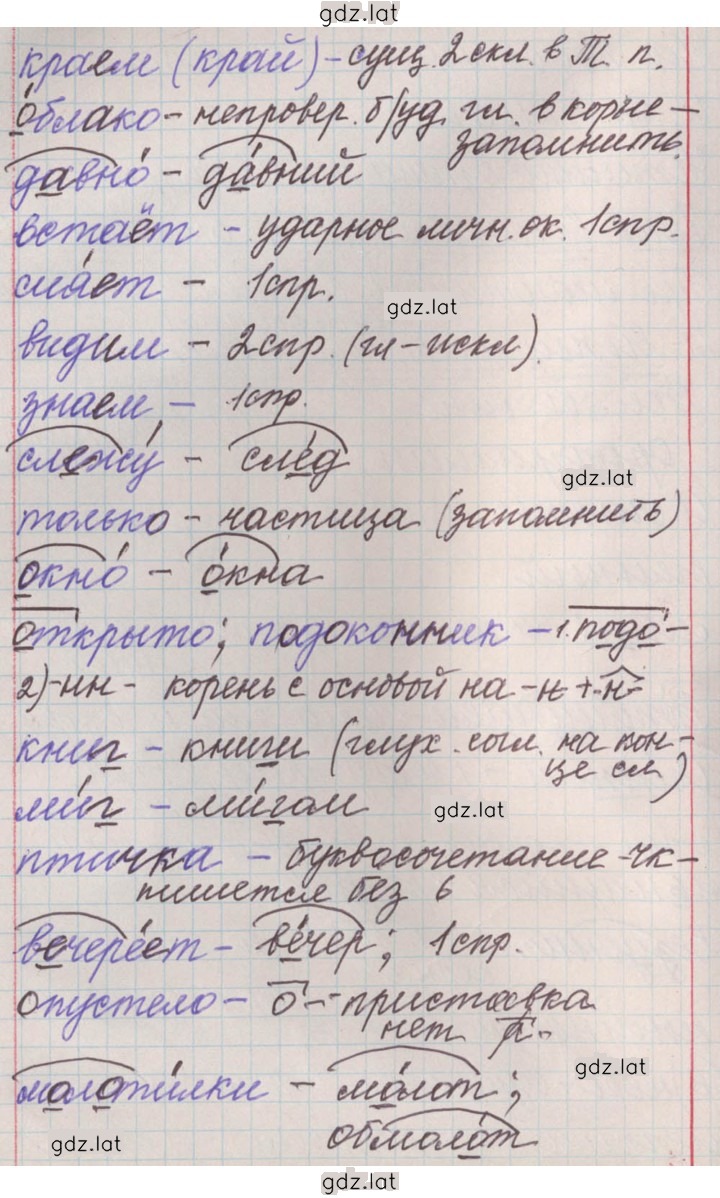 gdz.lat
краем (край) – сущ. 2 скл. в Т. п.
облако – непровер. б/уд. гл. в корне –
запомнить.
давно – давний
встаёт – ударное личн. ок. 1 спр.
gdz.lat
видим – 2 спр. (гл – искл).
знаем, – 1 спр.
слежу – след
gdz.lat
только – частица (запомнить)
окно – окна
открыто; подоконник – 1. подо-
2) -нн- корень с основой на -н + -н-
книг – книги (глух. согл. на кон-
це сл)
миг – мигом
gdz.lat
птичка – буквосочетание -чк-
пишется без ь
вечереет – вечер; 1 спр.
опустело – о- – приставка
нет а-
gdz.lat
молотилки – молот;
обмолот
gdz.lat
gdz.lat